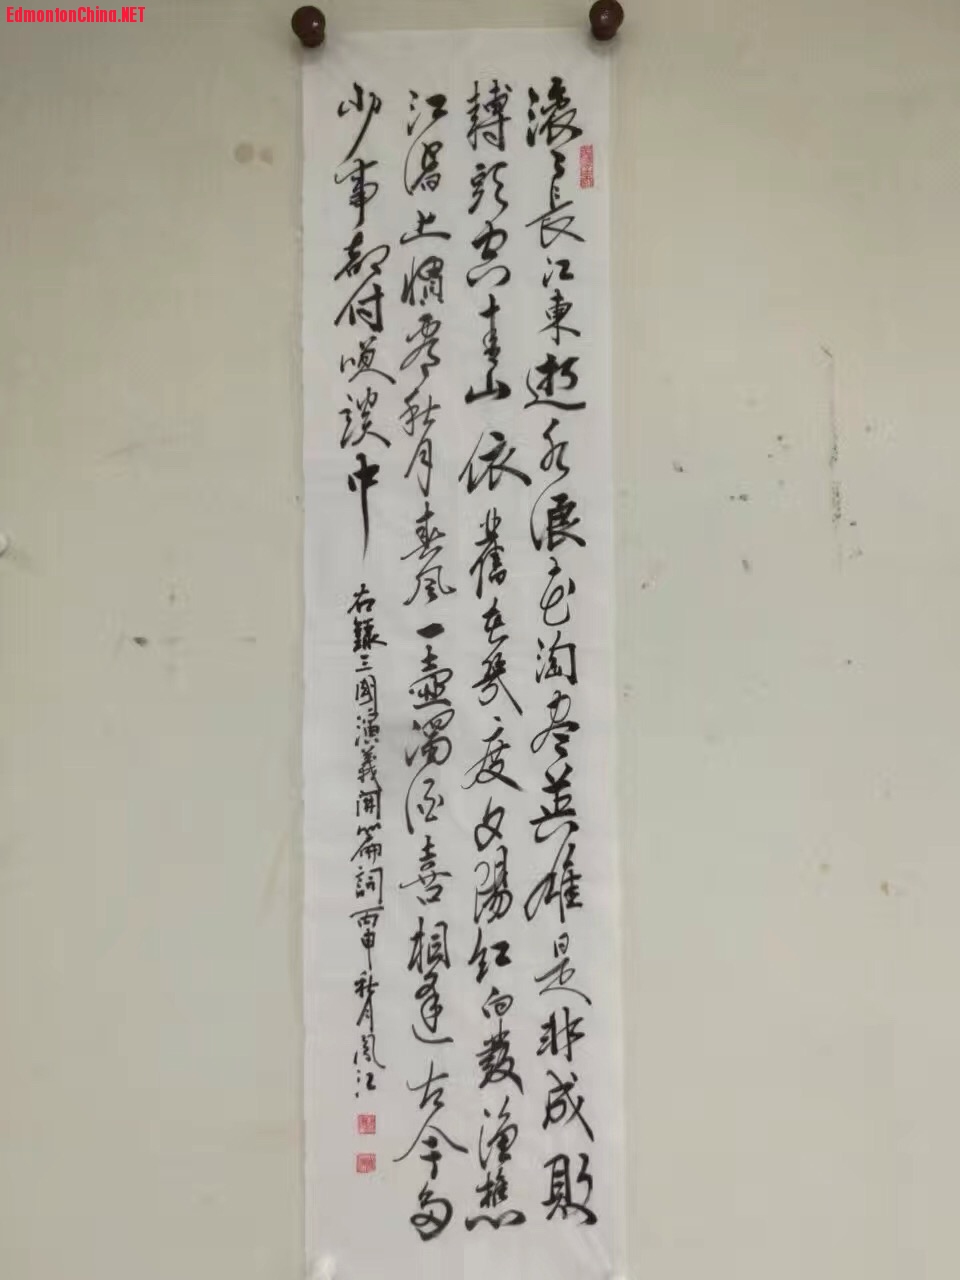 EdmontonChina.NET
滚々長江東逝水浪花淘尽英雄是非成敗
轉頭空青山依舊在幾度夕陽紅白發漁樵
江渚上慣看秋月春風一壺濁酒喜相逢古今多
少事都付咲談中
右録三國演義開篇詞丙申秋月江